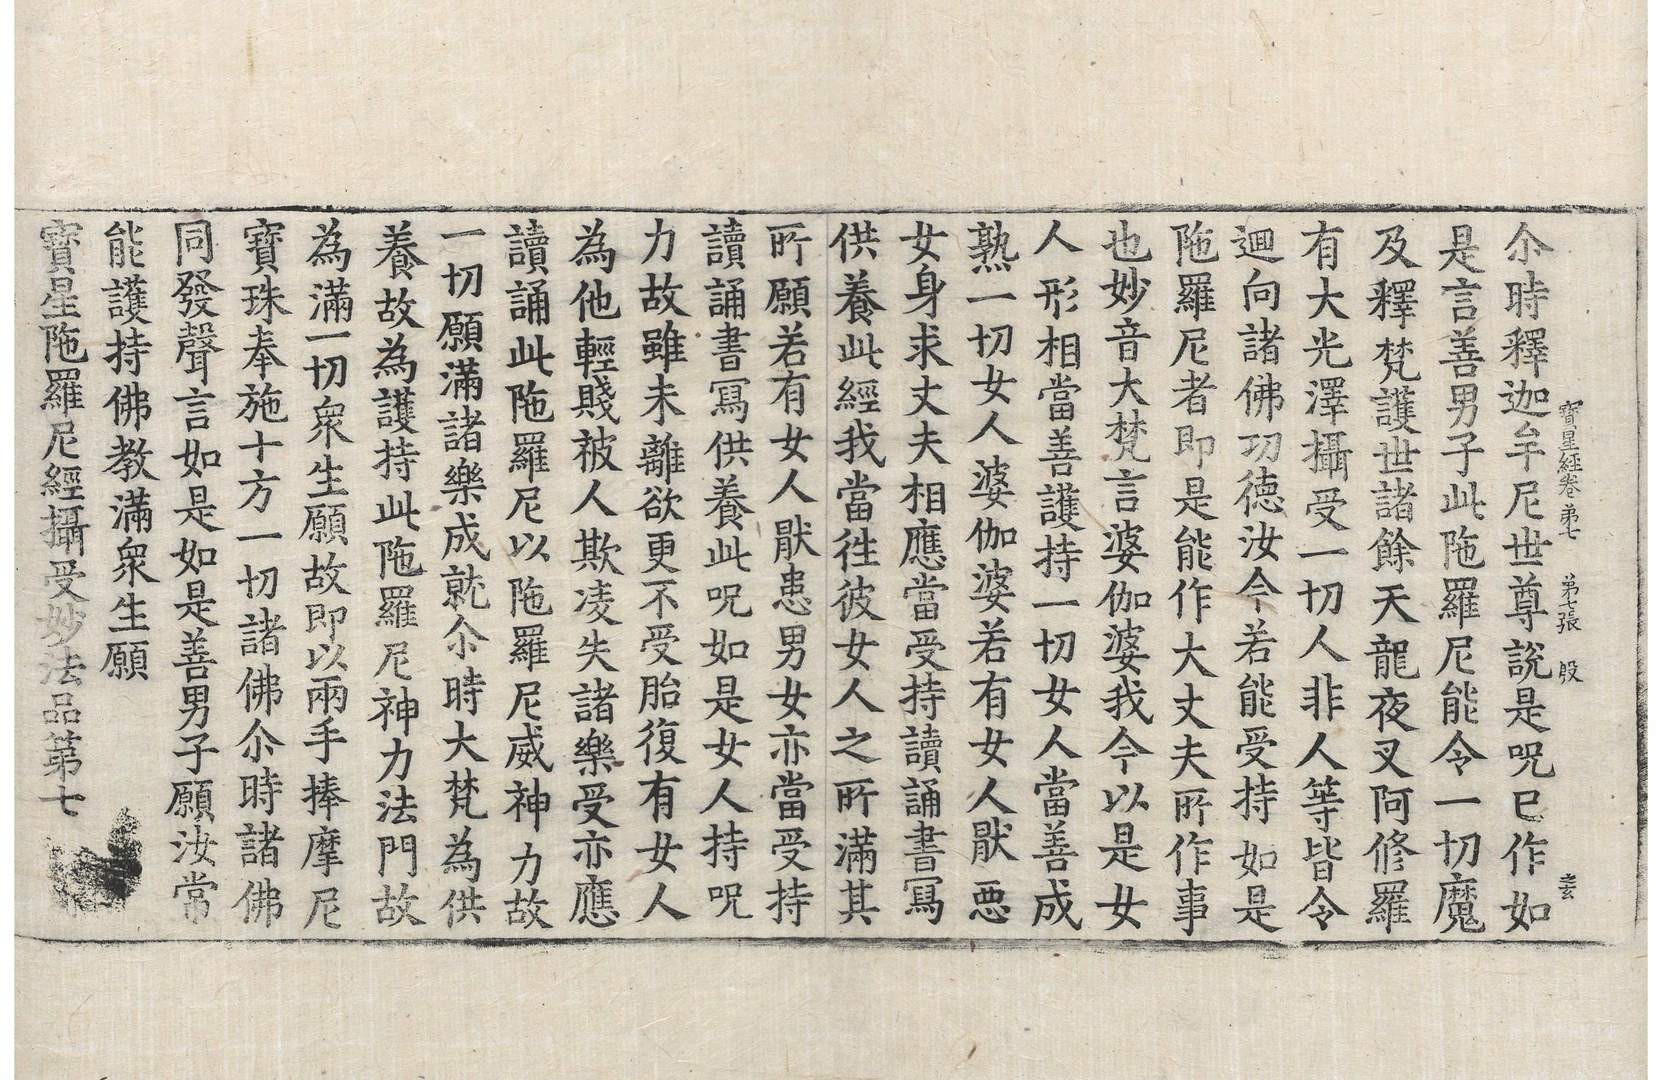 寶星經卷弟七 弟七張 殷 之玄
尒時釋迦牟尼世尊說是呪已作如
是言善男子此陁羅尼能令一切魔
及釋梵護世諸餘天龍夜叉阿修羅
有大光澤攝受一切人非人等皆令
迴向諸佛功德汝今若能受持如是
陁羅尼者即是能作大丈夫所作事
也妙音大梵言婆伽婆我今以是女
人形相當善護持一切女人當善成
熟一切女人婆伽婆若有女人猒惡
女身求丈夫相應當受持讀誦書寫
供養此經我當徃彼女人之所滿其
所願若有女人猒患男女亦當受持
讀誦書寫供養此呪如是女人持呪
力故雖未離欲更不受胎復有女人
為他輕賤被人欺凌失諸樂受亦應
讀誦此陁羅尼以陁羅尼威神力故
一切願滿諸樂成就尒時大梵為供
養故為護持此陁羅尼神力法門故
為滿一切衆生願故即以兩手捧摩尼
寶珠奉施十方一切諸佛尒時諸佛
同發聲言如是如是善男子願汝常
能護持佛教滿衆生願
寶星陁羅尼經攝受妙法品第七